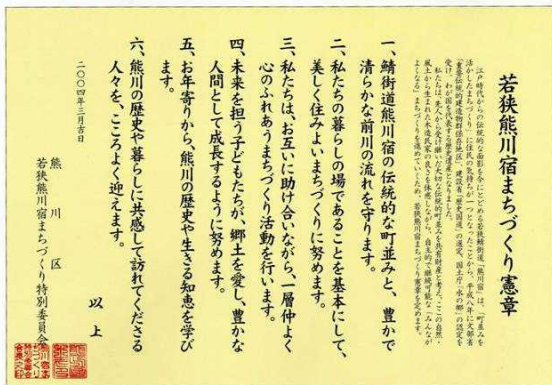 若狭熊川宿まちづくり憲章
江戸時代からの伝統的な面影を今にとどめる若狭鯖街道「熊川宿」は、「町並みを
活かしたまちづくり」に住民の気持ちが一つとなったことから、平成八年に文部省
「重要伝統的建造物群保存地区」、建設省「歴史国道」の選定、国土庁「水の郷」の認定を
受け、わが国を代表する歴史遺産になりました。
私たちは、先人から受け継いだ大切な伝統的町並みを共有財産と考え、ここの自然・
風土から生まれた木造民家の良さを体感しながら、自主的で継続可能な「みんなが
よくなる」まちづくりを進めていくため、若狭熊川宿まちづくり憲章を定めます。
一、鯖街道熊川宿の伝統的な町並みと、豊かで
清らかな前川の流れを守ります。
二、私たちの暮らしの場であることを基本にして、
美しく住みよいまちづくりに努めます。
三、私たちは、お互いに助け合いながら、一層仲よく
心のふれあうまちづくり活動を行います。
四、未来を担う子どもたちが、郷土を愛し、豊かな
人間として成長するように努めます。
五、お年寄りから、熊川の歴史や生きる知恵を学び
ます。
六、熊川の歴史や暮らしに共感して訪れてくださる
人々を、こころよく迎えます。
以上
二〇〇四年三月吉日
熊川区
若狭熊川宿まちづくり特別委員会